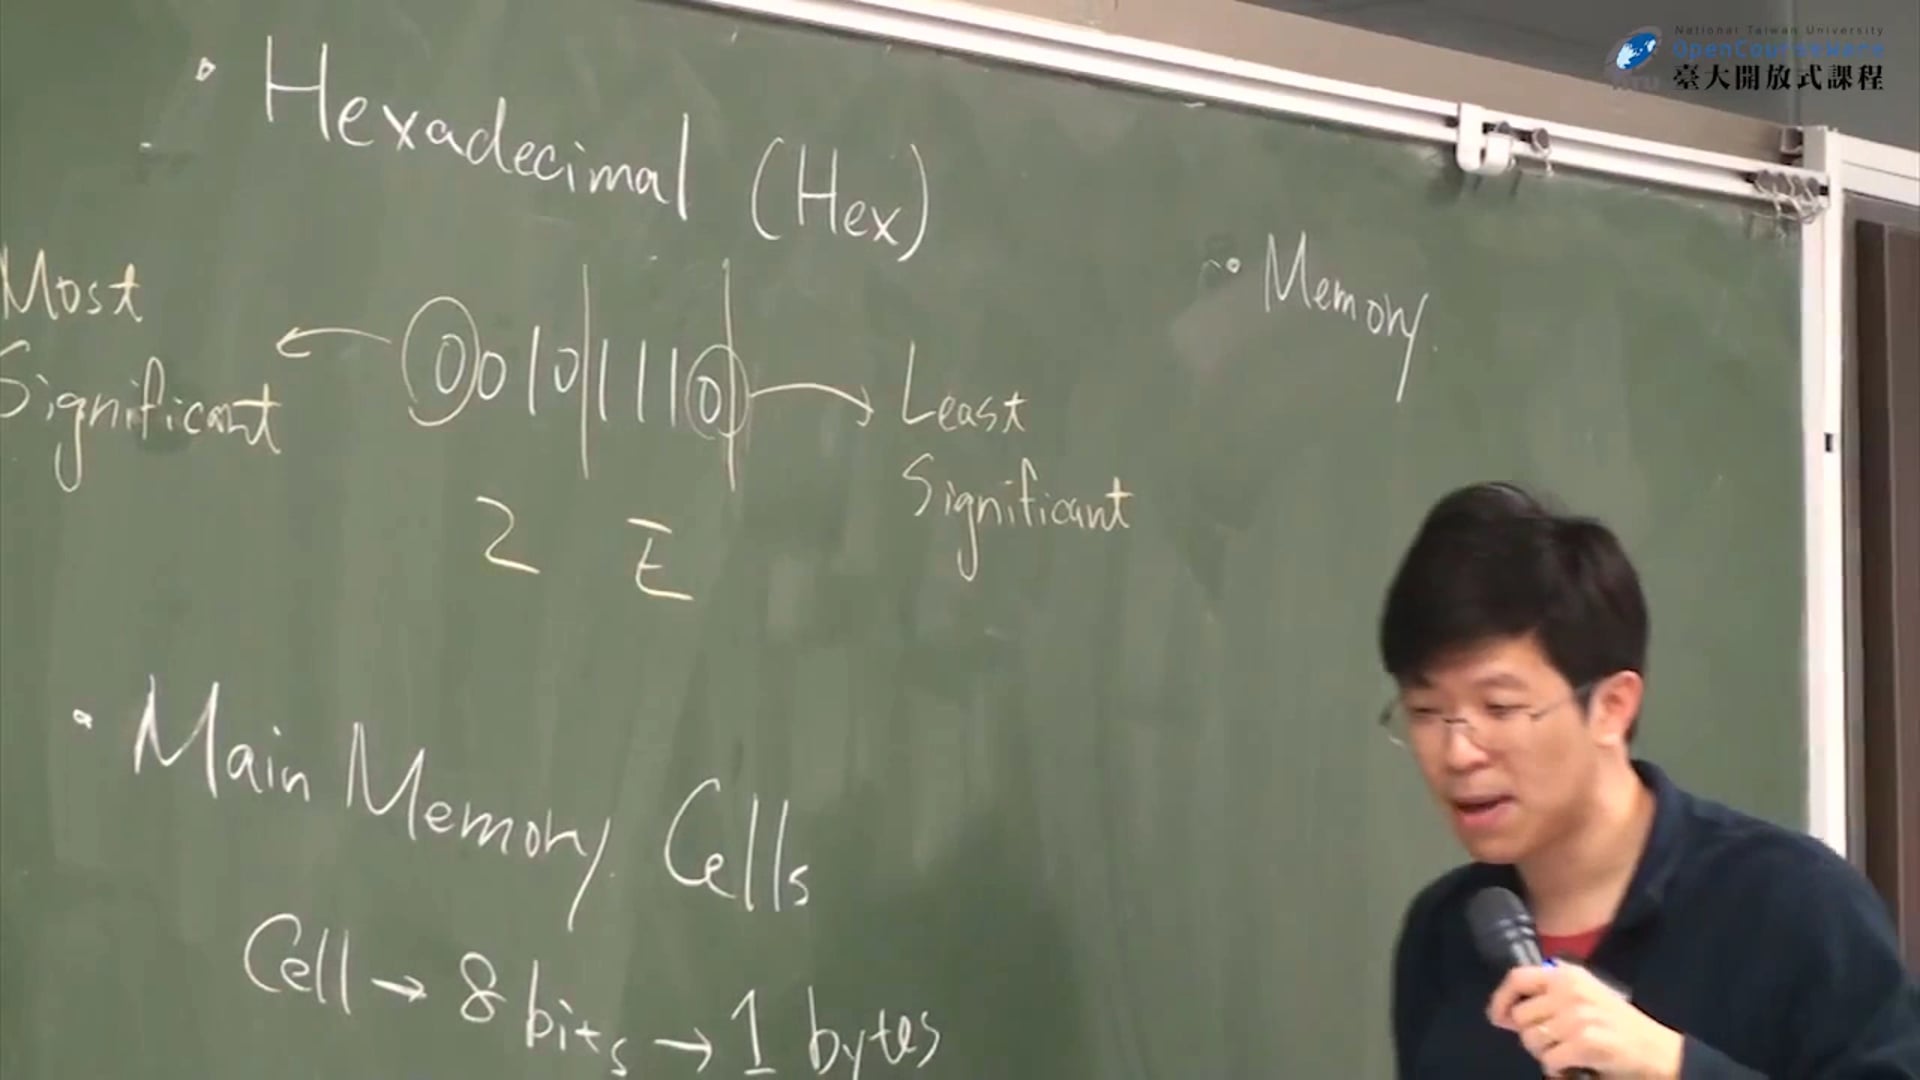 National Taiwan University
OpenCourseWare
臺大開放式課程
• Hexadecimal (Hex)
Most
Significant
0010|1110|
Least
Significant
2 E
• Main Memory Cells
Cell → 8 bits → 1 bytes
• Memory